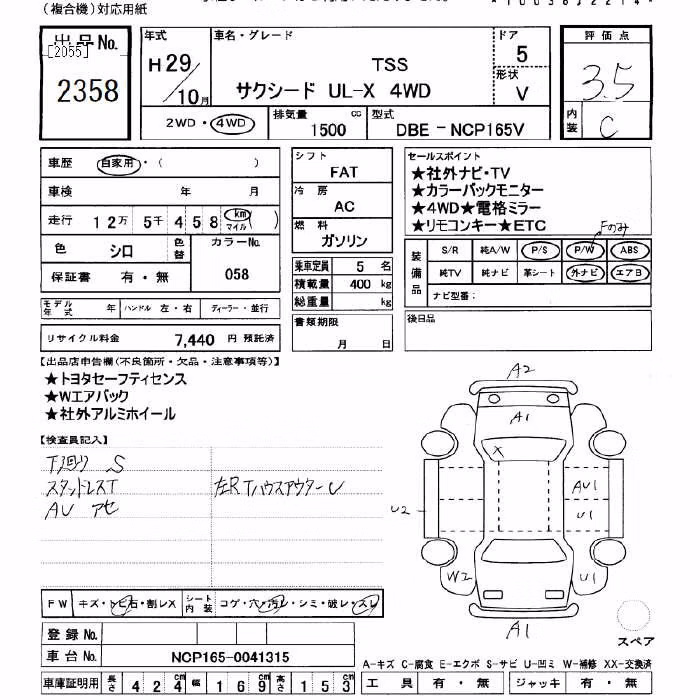 （複合機）対応用紙
出品No.
[2055]
2358
年式
H29/10月
車名・グレード
TSS
サクシード UL-X 4WD
ドア
5
形状
V
評価点
3.5
内装
C
2WD・4WD
排気量
1500 cc
型式
DBE-NCP165V
車歴 自家用・（ ）
車検 年 月
走行 12万 5千 4 5 8 km マイル
色 シロ 色替 カラーNo.
058
保証書 有・無
モデル年式 年 ハンドル 左・右 ディーラー・並行
リサイクル料金 7,440 円 預託済
シフト
FAT
冷房
AC
燃料
ガソリン
乗車定員 5 名
積載量 400 kg
総重量 kg
書類期限
月 日
セールスポイント
★社外ナビ・TV
★カラーバックモニター
★4WD★電格ミラー
★リモコンキー★ETC
Fのみ
装備品
S/R 純A/W P/S P/W ABS
純TV 純ナビ 革シート 外ナビ エアB
ナビ型番：
後日品
【出品店申告欄(不良箇所・欠品・注意事項等)】
★トヨタセーフティセンス
★Wエアバック
★社外アルミホイール
【検査員記入】
下廻り S
スタッドレスT 左RTハウスアウターU
AU アセ
A2
A1
X
AU1
U2
U1
W2
U1
A1
スペア
FW キズ・トビ石・割レX シート内装 コゲ・穴・汚レ・シミ・破レ・スレ
登録No.
車台No. NCP165-0041315
車庫証明用 長さ 4 2 4 cm 幅 1 6 9 cm 高さ 1 5 3 cm
A-キズ C-腐食 E-エクボ S-サビ U-凹ミ W-補修 XX-交換済
工具 有・無 ジャッキ 有・無